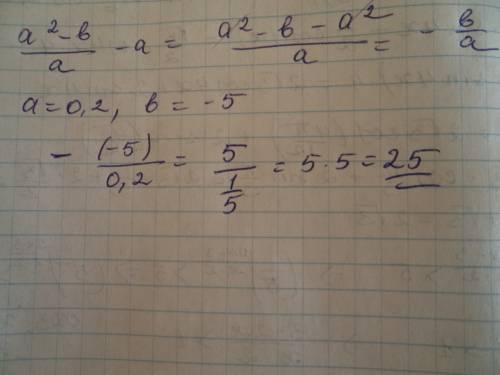 (a² - в)/a - a = (a² - в - a²)/a = - в/a
a = 0,2, в = -5
- (-5)/0,2 = 5/(1/5) = 5·5 = 25